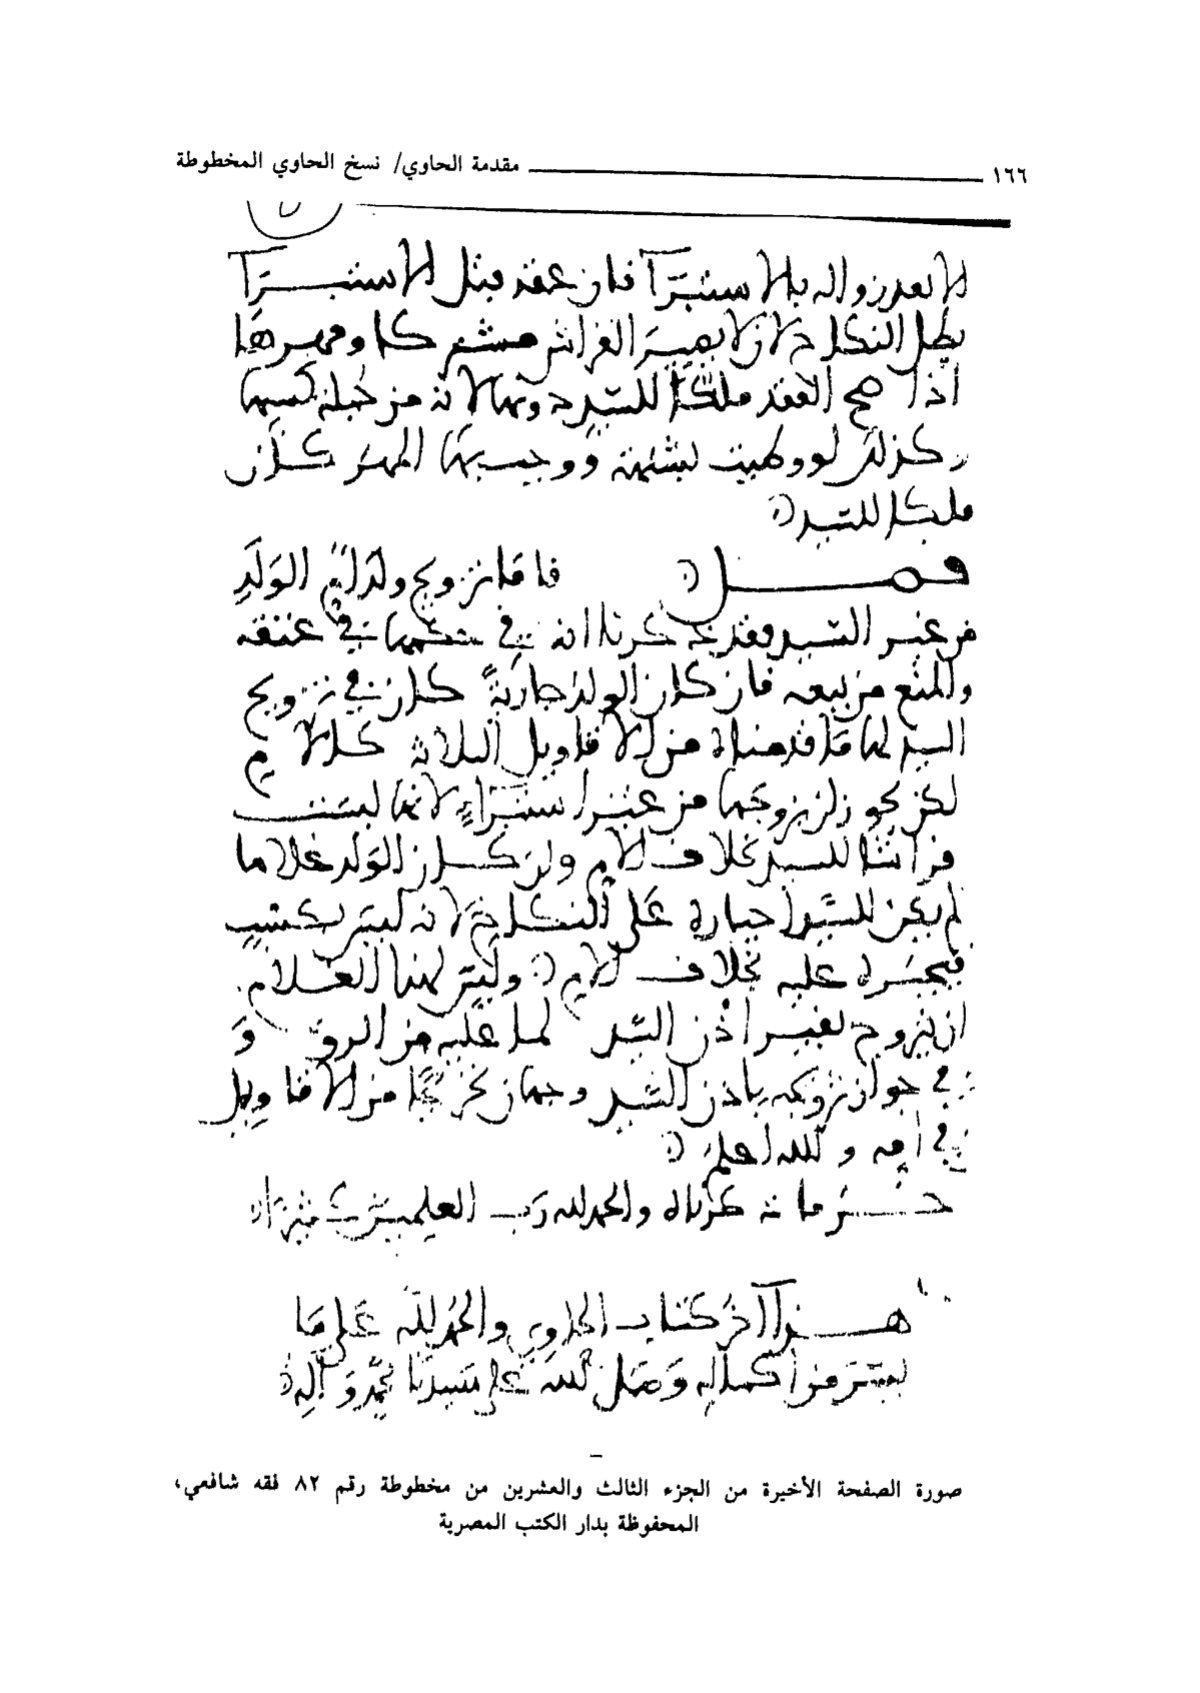 ١٦٦ مقدمة الحاوي/ نسخ الحاوي المخطوطة
الا بعد زواله بالاستبرآ فان عقد قبل الاستبرآ
بطل النكاح لان لا يصير الفراش مشتركا ومهرها
اذا صح العقد ملكا للسيد دونها لانه من جملة كسبها
وكذلك لو وطيت بشبهة ووجب لها المهر كان
ملكا للسيد
فصل فاما تزويج ولد ام الولد
من غير السيد فقد ذكرنا انه في حكمها في عتقه
والمنع من بيعه فان كان الولد جارية كان في تزويج
السيد لها ما قدمناه من الاقاويل الثلاثة كالام
لكن يجوز ان يزوجها من غير استبراء لانها ليست
فراشا للسيد بخلاف الام وان كان الولد غلاما
لم يكن للسيد اجباره على النكاح لانه ليس بكسب
فيجبره عليه بخلاف الام وليس لهذا الغلام
ان يتزوج بغير اذن السيد لما عليه من الرق و
في جواز تزوجه باذن السيد وجهان تخريجا من الاقاويل
في امه والله اعلم
اخر ما ذكرناه والحمد لله رب العلمين كثيرا
هذا آخر كتاب الحاوي والحمد لله على ما
يسر من اكماله وصلى الله على سيدنا محمد وآله
صورة الصفحة الأخيرة من الجزء الثالث والعشرين من مخطوطة رقم ٨٢ فقه شافعي،
المحفوظة بدار الكتب المصرية